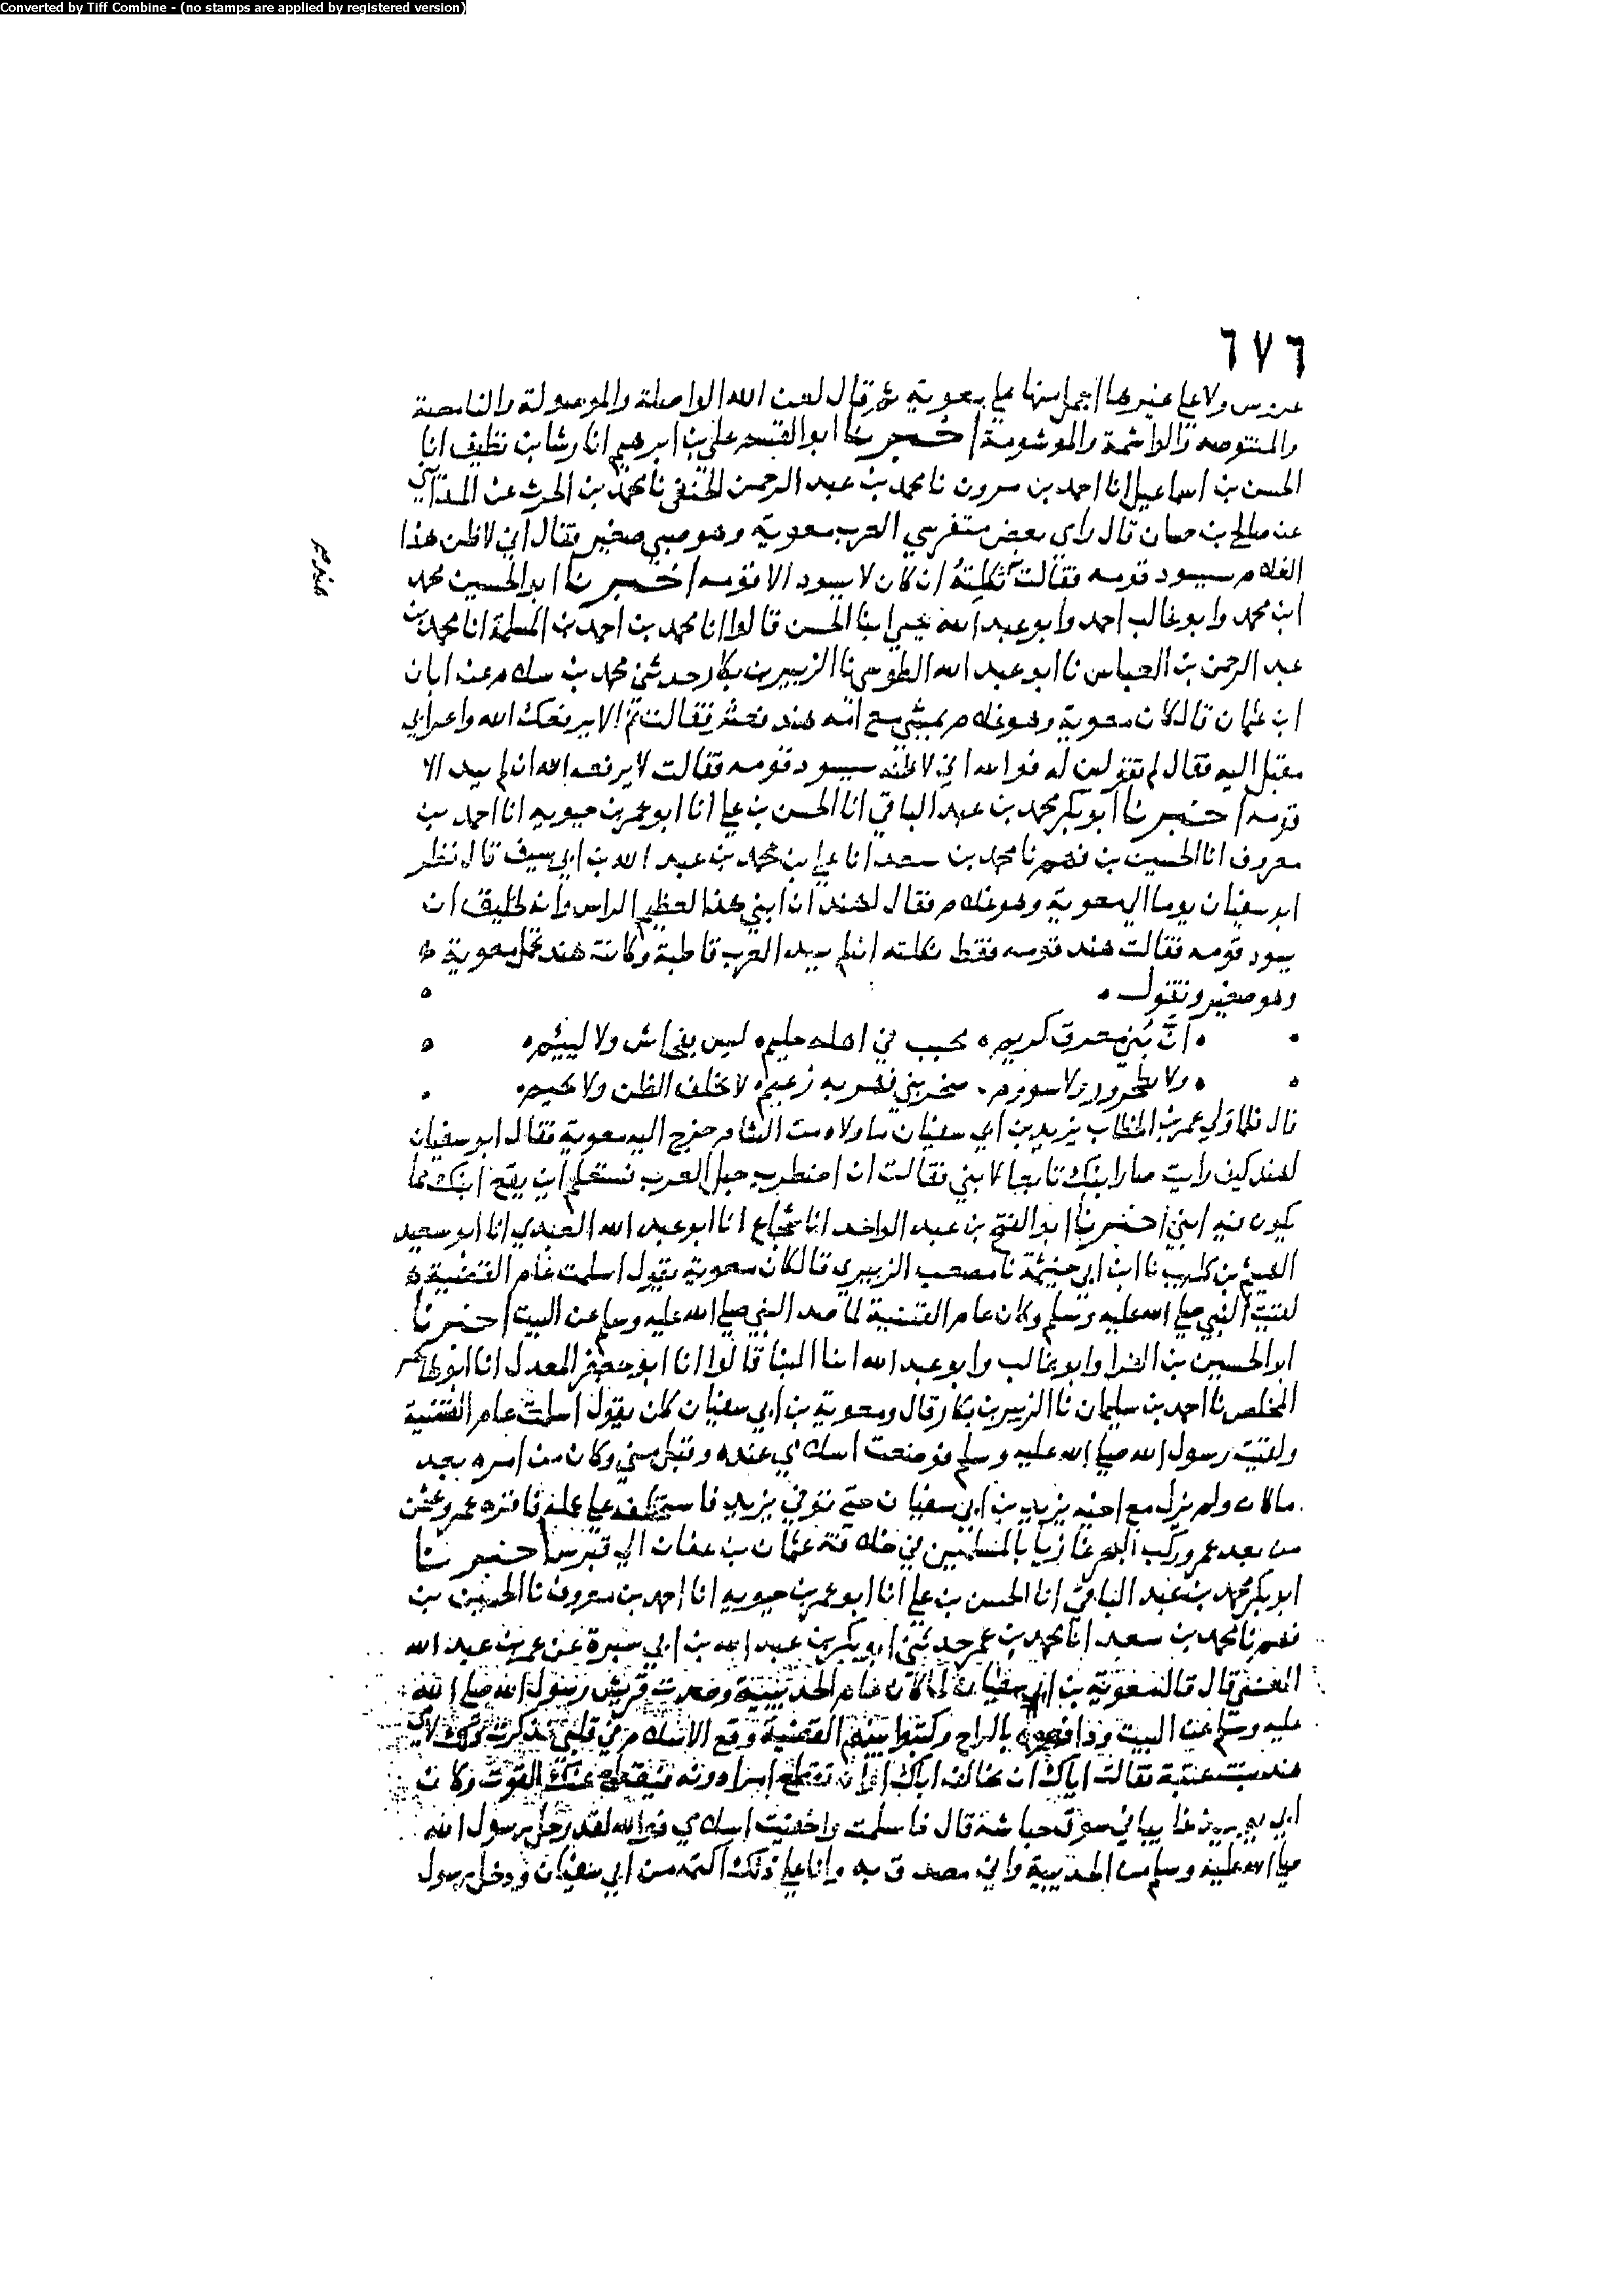 Converted by Tiff Combine - (no stamps are applied by registered version)
٦٧٦
عروس ولا على غيرها اجمل منها على معوية ثم قال لعن الله الواصلة والموصولة والنامصة
والمنتوصه والواشمة والموشومة اخبرنا ابو القسم علي بن ابرهيم انا رشا بن نظيف انا
الحسن بن اسماعيل انا احمد بن مرون نا محمد بن عبد الرحمن الحنفي نا محمد بن الحرث عن المدآئني
عن صالح بن حسان قال راى بعض متفرسي العرب معوية وهو صبي صغير فقال اني لاظن هذا
الغلام سيسود قومه فقالت ثكلته ان كان لا يسود الا قومه اخبرنا ابو الحسين محمد
ابن محمد وابو غالب احمد وابو عبد الله يحيى ابنا الحسن قالوا انا محمد بن احمد بن المسلمة انا محمد بن
عبد الرحمن بن العباس نا ابو عبد الله الطوسي نا الزبير بن بكار حدثني محمد بن سلام عن ابان
ابن عثمان قال كان معوية وهو غلام يمشي مع امه هند فعثر فقالت قم لا رفعك الله واعرابي
مقبل اليه فقال لم تقولين له فوالله اني لاظنه سيسود قومه فقالت لا رفعه الله ان لم يسد الا
قومه اخبرنا ابو بكر محمد بن عبد الباقي انا الحسن بن علي انا ابو عمر بن حيويه انا احمد بن
معروف انا الحسين بن فهم نا محمد بن سعد انا علي بن محمد بن عبد الله بن ابي سيف قال نظر
ابو سفيان يوما الى معوية وهو غلام فقال لهند ان ابني هذا لعظيم الراس وانه لخليق ان
يسود قومه فقالت هند قومه فقط ثكلته ان لم يسد العرب قاطبة وكانت هند تحمل معوية
وهو صغير وتقول
ان بني معرق كريم محبب في اهله حليم ليس بفحاش ولا لئيم
ولا بطخرور ولا سووم صخر بني فهر به زعيم لا يخلف الظن ولا يخيم
قال فلما ولى عمر بن الخطاب يزيد بن ابي سفيان ما ولاه من الشام خرج اليه معوية فقال ابو سفيان
لهند كيف رايت صار ابنك تابعا لابني فقالت ان اضطرب حبل العرب فستعلم اين يقع ابنك مما
يكون فيه ابني اخبرنا ابو الفتح بن عبد الواحد انا شجاع انا ابو عبد الله العبدي انا ابو سعيد
الهيثم بن كليب نا ابن ابي خيثمة نا مصعب الزبيري قال كان معوية يقول اسلمت عام القضية
لقيت النبي صلى الله عليه وسلم وكان عام القضية لما صد النبي صلى الله عليه وسلم عن البيت اخبرنا
ابو الحسين بن الفرا وابو غالب وابو عبد الله ابنا البنا قالوا انا ابو جعفر المعدل انا ابو طاهر
المخلص نا احمد بن سليمان نا الزبير بن بكار قال ومعوية بن ابي سفيان كان يقول اسلمت عام القضية
ولقيت رسول الله صلى الله عليه وسلم فوضعت اسلامي عنده وتقبل مني وكان من امره بعد
ما كان ولم يزل مع اخيه يزيد بن ابي سفيان حتى توفي يزيد فاستخلفه على عمله فاقره عمر وعثمن
من بعد عمر وركب البحر غازيا بالمسلمين في خلافة عثمان بن عفان الى قبرس اخبرنا
ابو بكر محمد بن عبد الباقي انا الحسن بن علي انا ابو عمر بن حيويه انا احمد بن معروف نا الحسين بن
فهم نا محمد بن سعد انا محمد بن عمر حدثني ابو بكر بن عبد الله بن ابي سبرة عن عمر بن عبد الله
العنسي قال قال معوية بن ابي سفيان لما كان عام الحديبية وصدت قريش رسول الله صلى الله
عليه وسلم عن البيت ودافعوه بالراح وكتبوا بينهم القضية وقع الاسلام في قلبي فذكرت ذلك لامي
هند بنت عتبة فقالت اياك ان تخالف اباك او ان تقطع امرا دونه فيقطع عنك القوت وكان
ابي يومئذ غايبا في سوق حباشة قال فاسلمت واخفيت اسلامي فوالله لقد رحل رسول الله
صلى الله عليه وسلم من الحديبية واني مصدق به وانا على ذلك اكتمه من ابي سفيان ودخل رسول